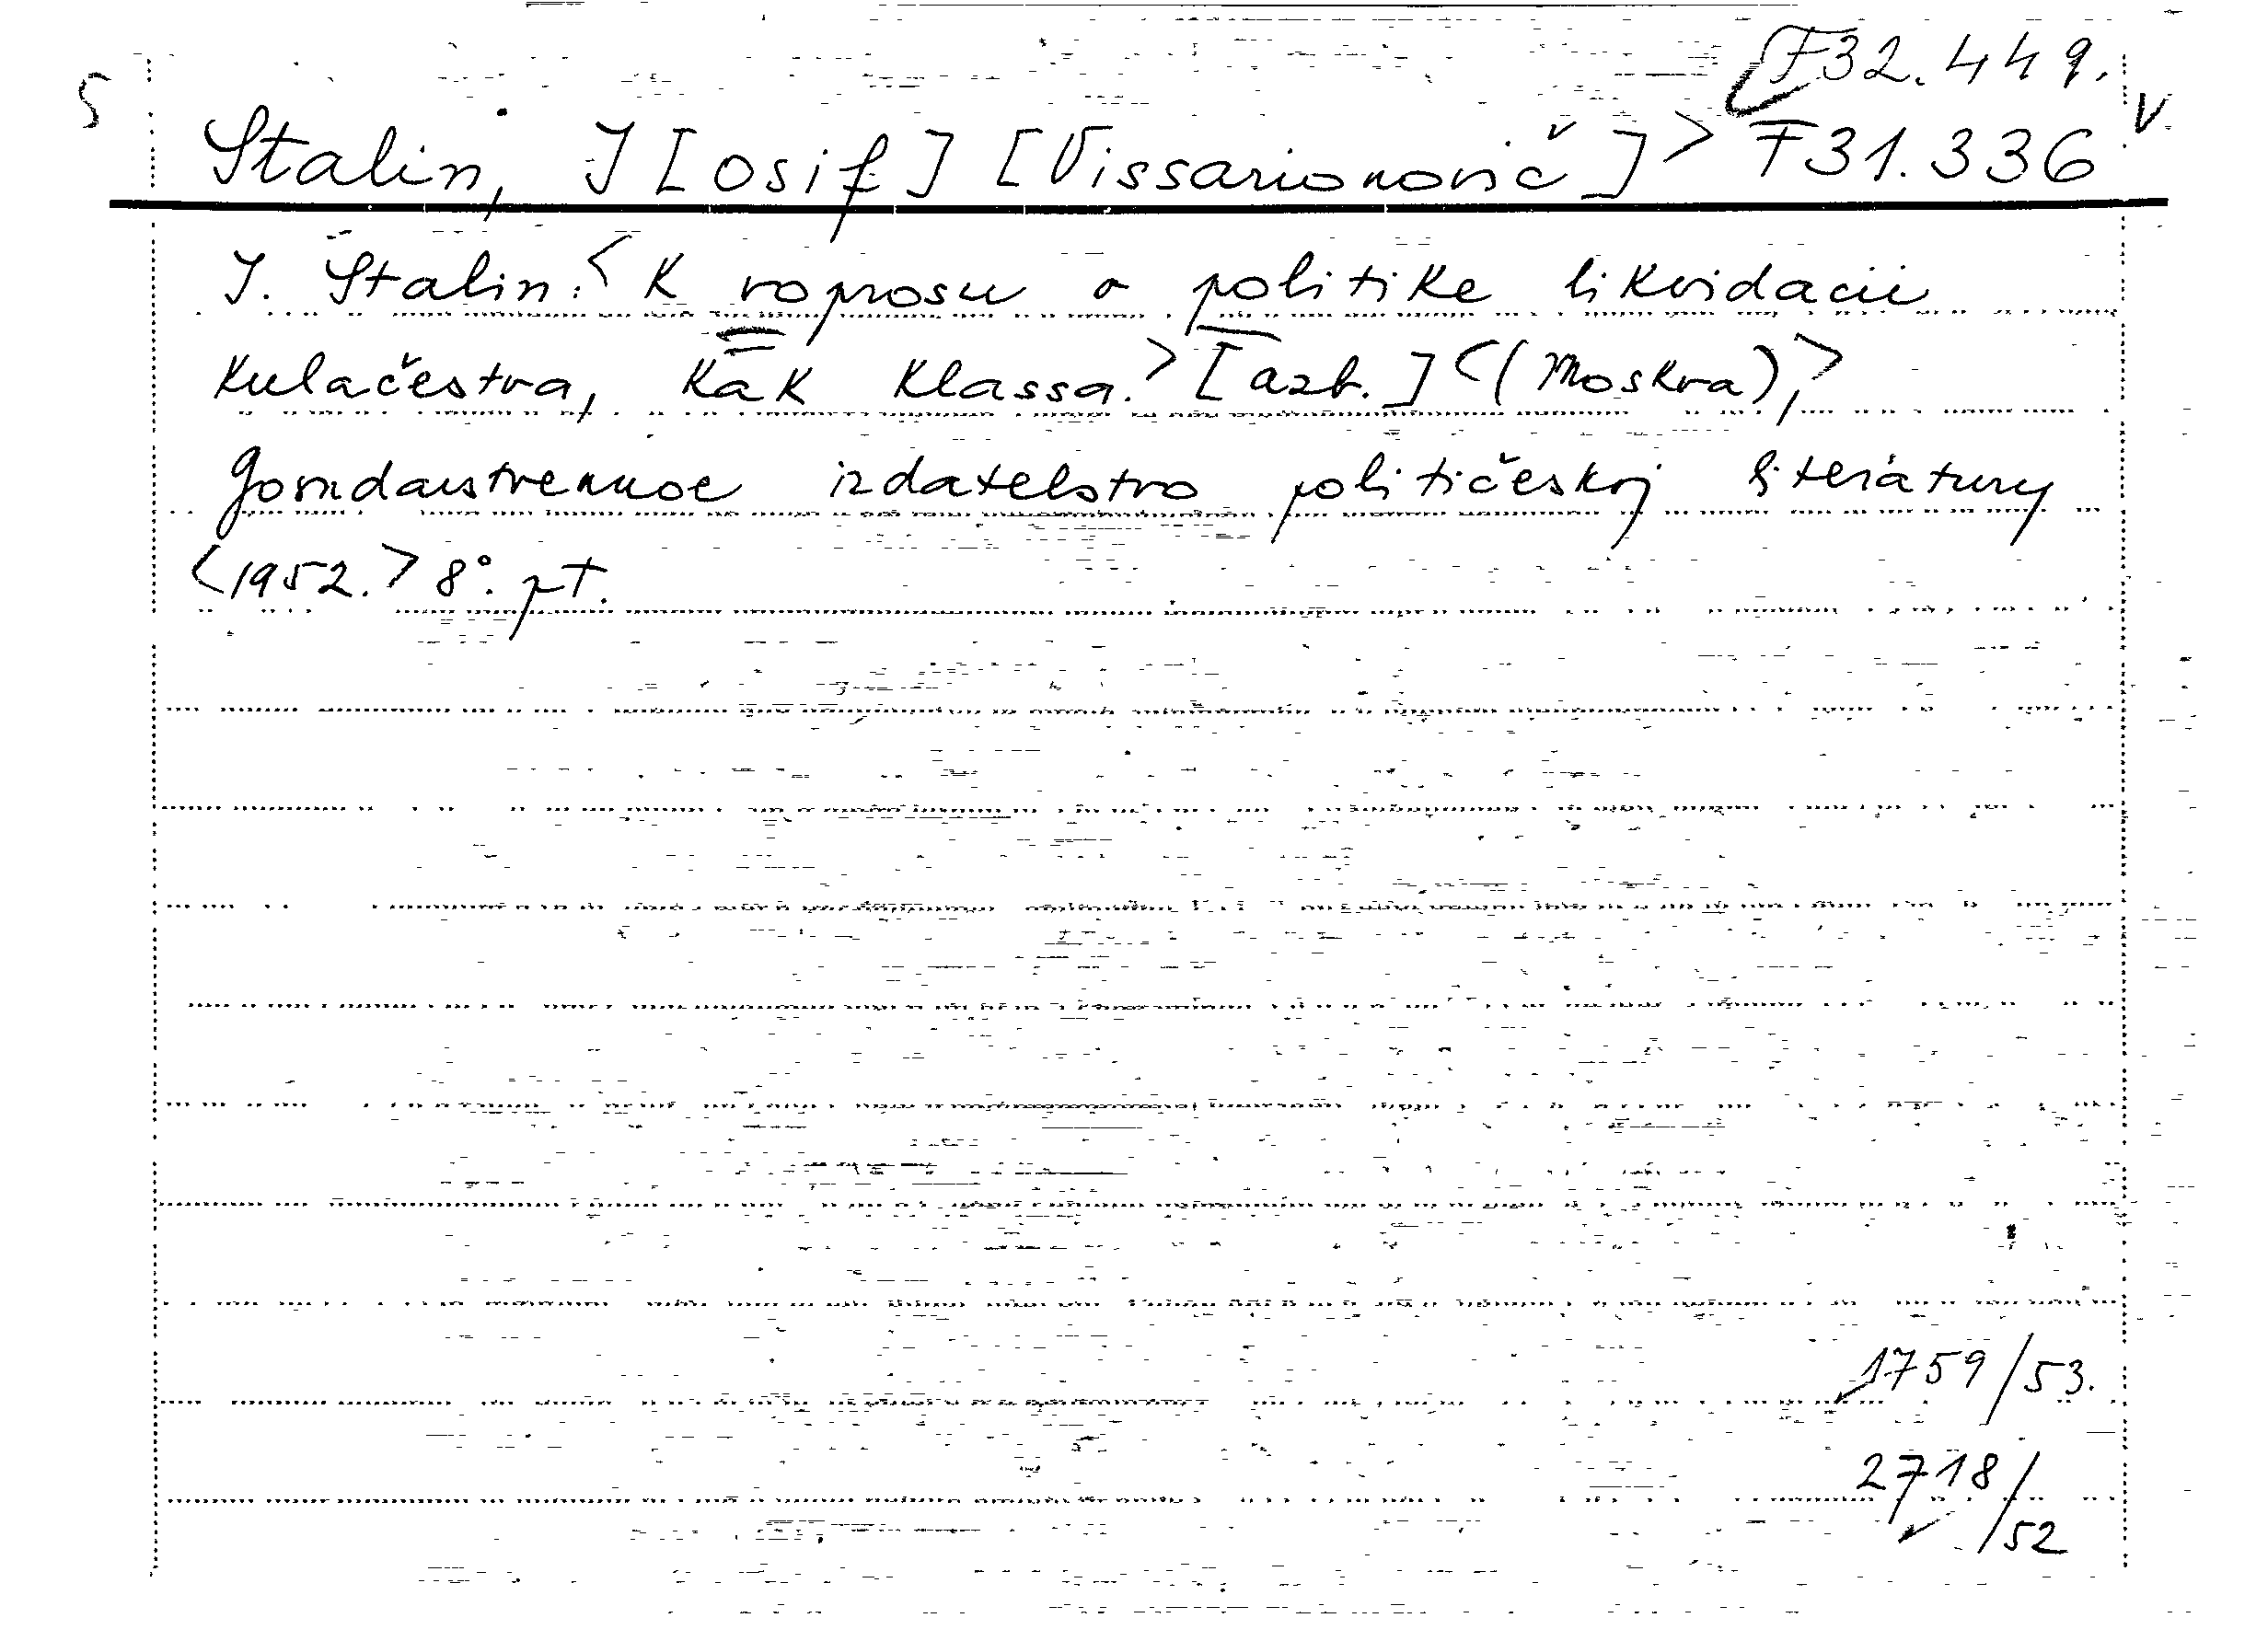 S
F32.449.
Stalin, J[osif] [Vissarionovič]> F31.336 v
J. Stalin: <K voprosu o politike likvidacii
kulačestva, kak klassa.> [azb.] <(Moskva),>
Gosudarstvennoe izdatelstvo političeskoj literatury
<1952.> 8°. pt.
1759/53.
2718/
/52